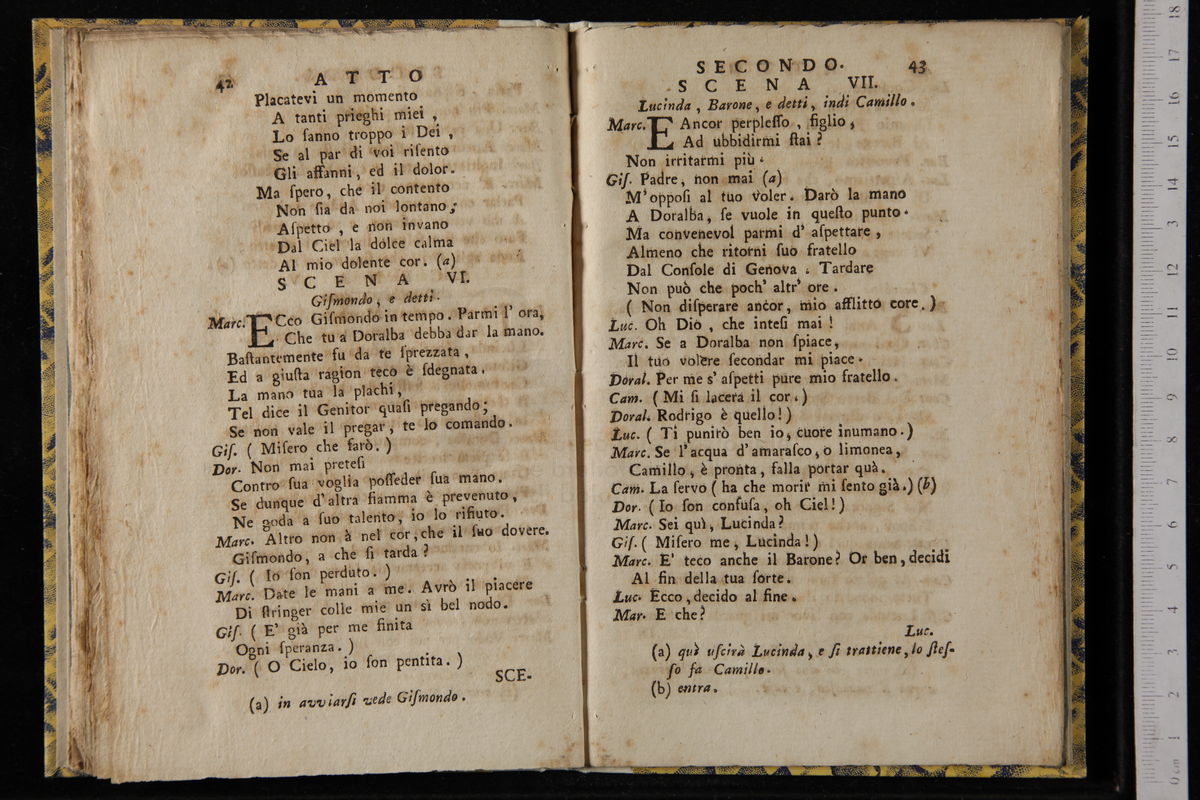 42 ATTO
Placatevi un momento
A tanti prieghi miei,
Lo ſanno troppo i Dei,
Se al par di voi riſento
Gli affanni, ed il dolor.
Ma ſpero, che il contento
Non ſia da noi lontano;
Aſpetto, e non invano
Dal Ciel la dolce calma
Al mio dolente cor. (a)
SCENA VI.
Giſmondo, e detti.
Marc. ECco Giſmondo in tempo. Parmi l'ora,
Che tu a Doralba debba dar la mano.
Baſtantemente fu da te ſprezzata,
Ed a giuſta ragion teco è ſdegnata.
La mano tua la plachi,
Tel dice il Genitor quaſi pregando;
Se non vale il pregar, te lo comando.
Giſ. ( Miſero che farò. )
Dor. Non mai preteſi
Contro ſua voglia poſſeder ſua mano.
Se dunque d'altra fiamma è prevenuto,
Ne goda a ſuo talento, io lo rifiuto.
Marc. Altro non à nel cor, che il ſuo dovere.
Giſmondo, a che ſi tarda?
Giſ. ( Io ſon perduto. )
Marc. Date le mani a me. Avrò il piacere
Di ſtringer colle mie un sì bel nodo.
Giſ. ( E' già per me finita
Ogni ſperanza. )
Dor. ( O Cielo, io ſon pentita. )
SCE-
(a) in avviarſi vede Giſmondo.
SECONDO. 43
SCENA VII.
Lucinda, Barone, e detti, indi Camillo.
Marc. E Ancor perpleſſo, figlio,
Ad ubbidirmi ſtai?
Non irritarmi più.
Giſ. Padre, non mai (a)
M'oppoſi al tuo voler. Darò la mano
A Doralba, ſe vuole in queſto punto.
Ma convenevol parmi d' aſpettare,
Almeno che ritorni ſuo fratello
Dal Conſole di Genova. Tardare
Non può che poch' altr' ore.
( Non diſperare ancor, mio afflitto core. )
Luc. Oh Dio, che inteſi mai!
Marc. Se a Doralba non ſpiace,
Il tuo volere ſecondar mi piace.
Doral. Per me s' aſpetti pure mio fratello.
Cam. ( Mi ſi lacera il cor. )
Doral. Rodrigo è quello! )
Luc. ( Ti punirò ben io, cuore inumano. )
Marc. Se l'acqua d'amaraſco, o limonea,
Camillo, è pronta, falla portar quà.
Cam. La ſervo ( ha che morir mi ſento già.) (b)
Dor. ( Io ſon confuſa, oh Ciel! )
Marc. Sei quì, Lucinda?
Giſ. ( Miſero me, Lucinda! )
Marc. E' teco anche il Barone? Or ben, decidi
Al fin della tua ſorte.
Luc. Ecco, decido al fine.
Mar. E che?
Luc.
(a) quì uſcirà Lucinda, e ſi trattiene, lo ſteſ-
ſo fa Camillo.
(b) entra.
0 cm 1 2 3 4 5 6 7 8 9 10 11 12 13 14 15 16 17 18